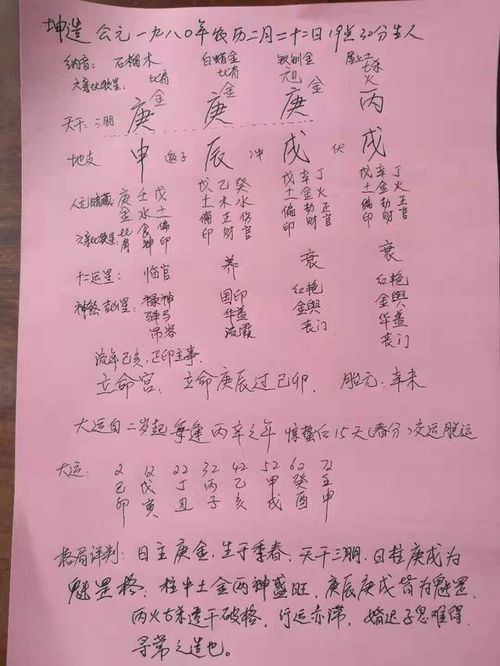 坤造 公元一九八〇年农历二月二十二日19点30分生人
纳音: 石榴木 白蜡金 钗钏金 屋上土
六亲比较星: 比肩 比肩 元 七杀
金 金 金 火
天干: 三朋 庚 庚 庚 丙
地支 申 子 辰 冲 戌 伏 戌
人元暗藏: 庚壬戊 戊乙癸 戊辛丁 戊辛丁
金水土 土木水 土金火 土金火
六亲比较星: 比食偏 偏正伤 偏劫正 偏劫正
肩神印 印财官 印财官 印财官
十二运星: 临官 养 衰 衰
神煞吉凶星: 禄神 国印 红艳 红艳
驿马 华盖 金舆 金舆
吊客 流霞 丧门 华盖
丧门
流年己亥,正印主事。
立命宫: 立命庚辰过己卯. 胎元: 辛未
大运自二岁起 每逢丙辛之年 惊蛰后15天(春分)交运脱运
大运: 2 12 22 32 42 52 62 72
己 戊 丁 丙 乙 甲 癸 壬
卯 寅 丑 子 亥 戌 酉 申
格局评判: 日主庚金,生于季春,天干三朋,日柱庚戌为
魁罡格;柱中土金两神盛旺,庚辰庚戌皆为魁罡.
丙火七杀透干破格,行运亦滞,婚迟子息难得.
寻常之造也。